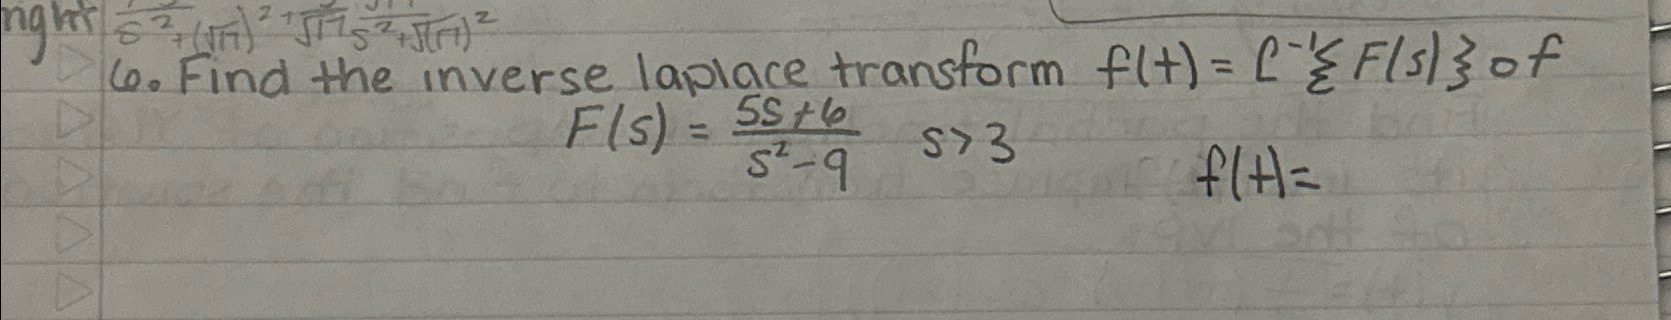 right s²+(√17)² + √17 s²+√(17)²
6. Find the inverse laplace transform f(t) = L⁻¹{F(s)} of
F(s) = 5s+6 / s²-9 s>3
f(t)=